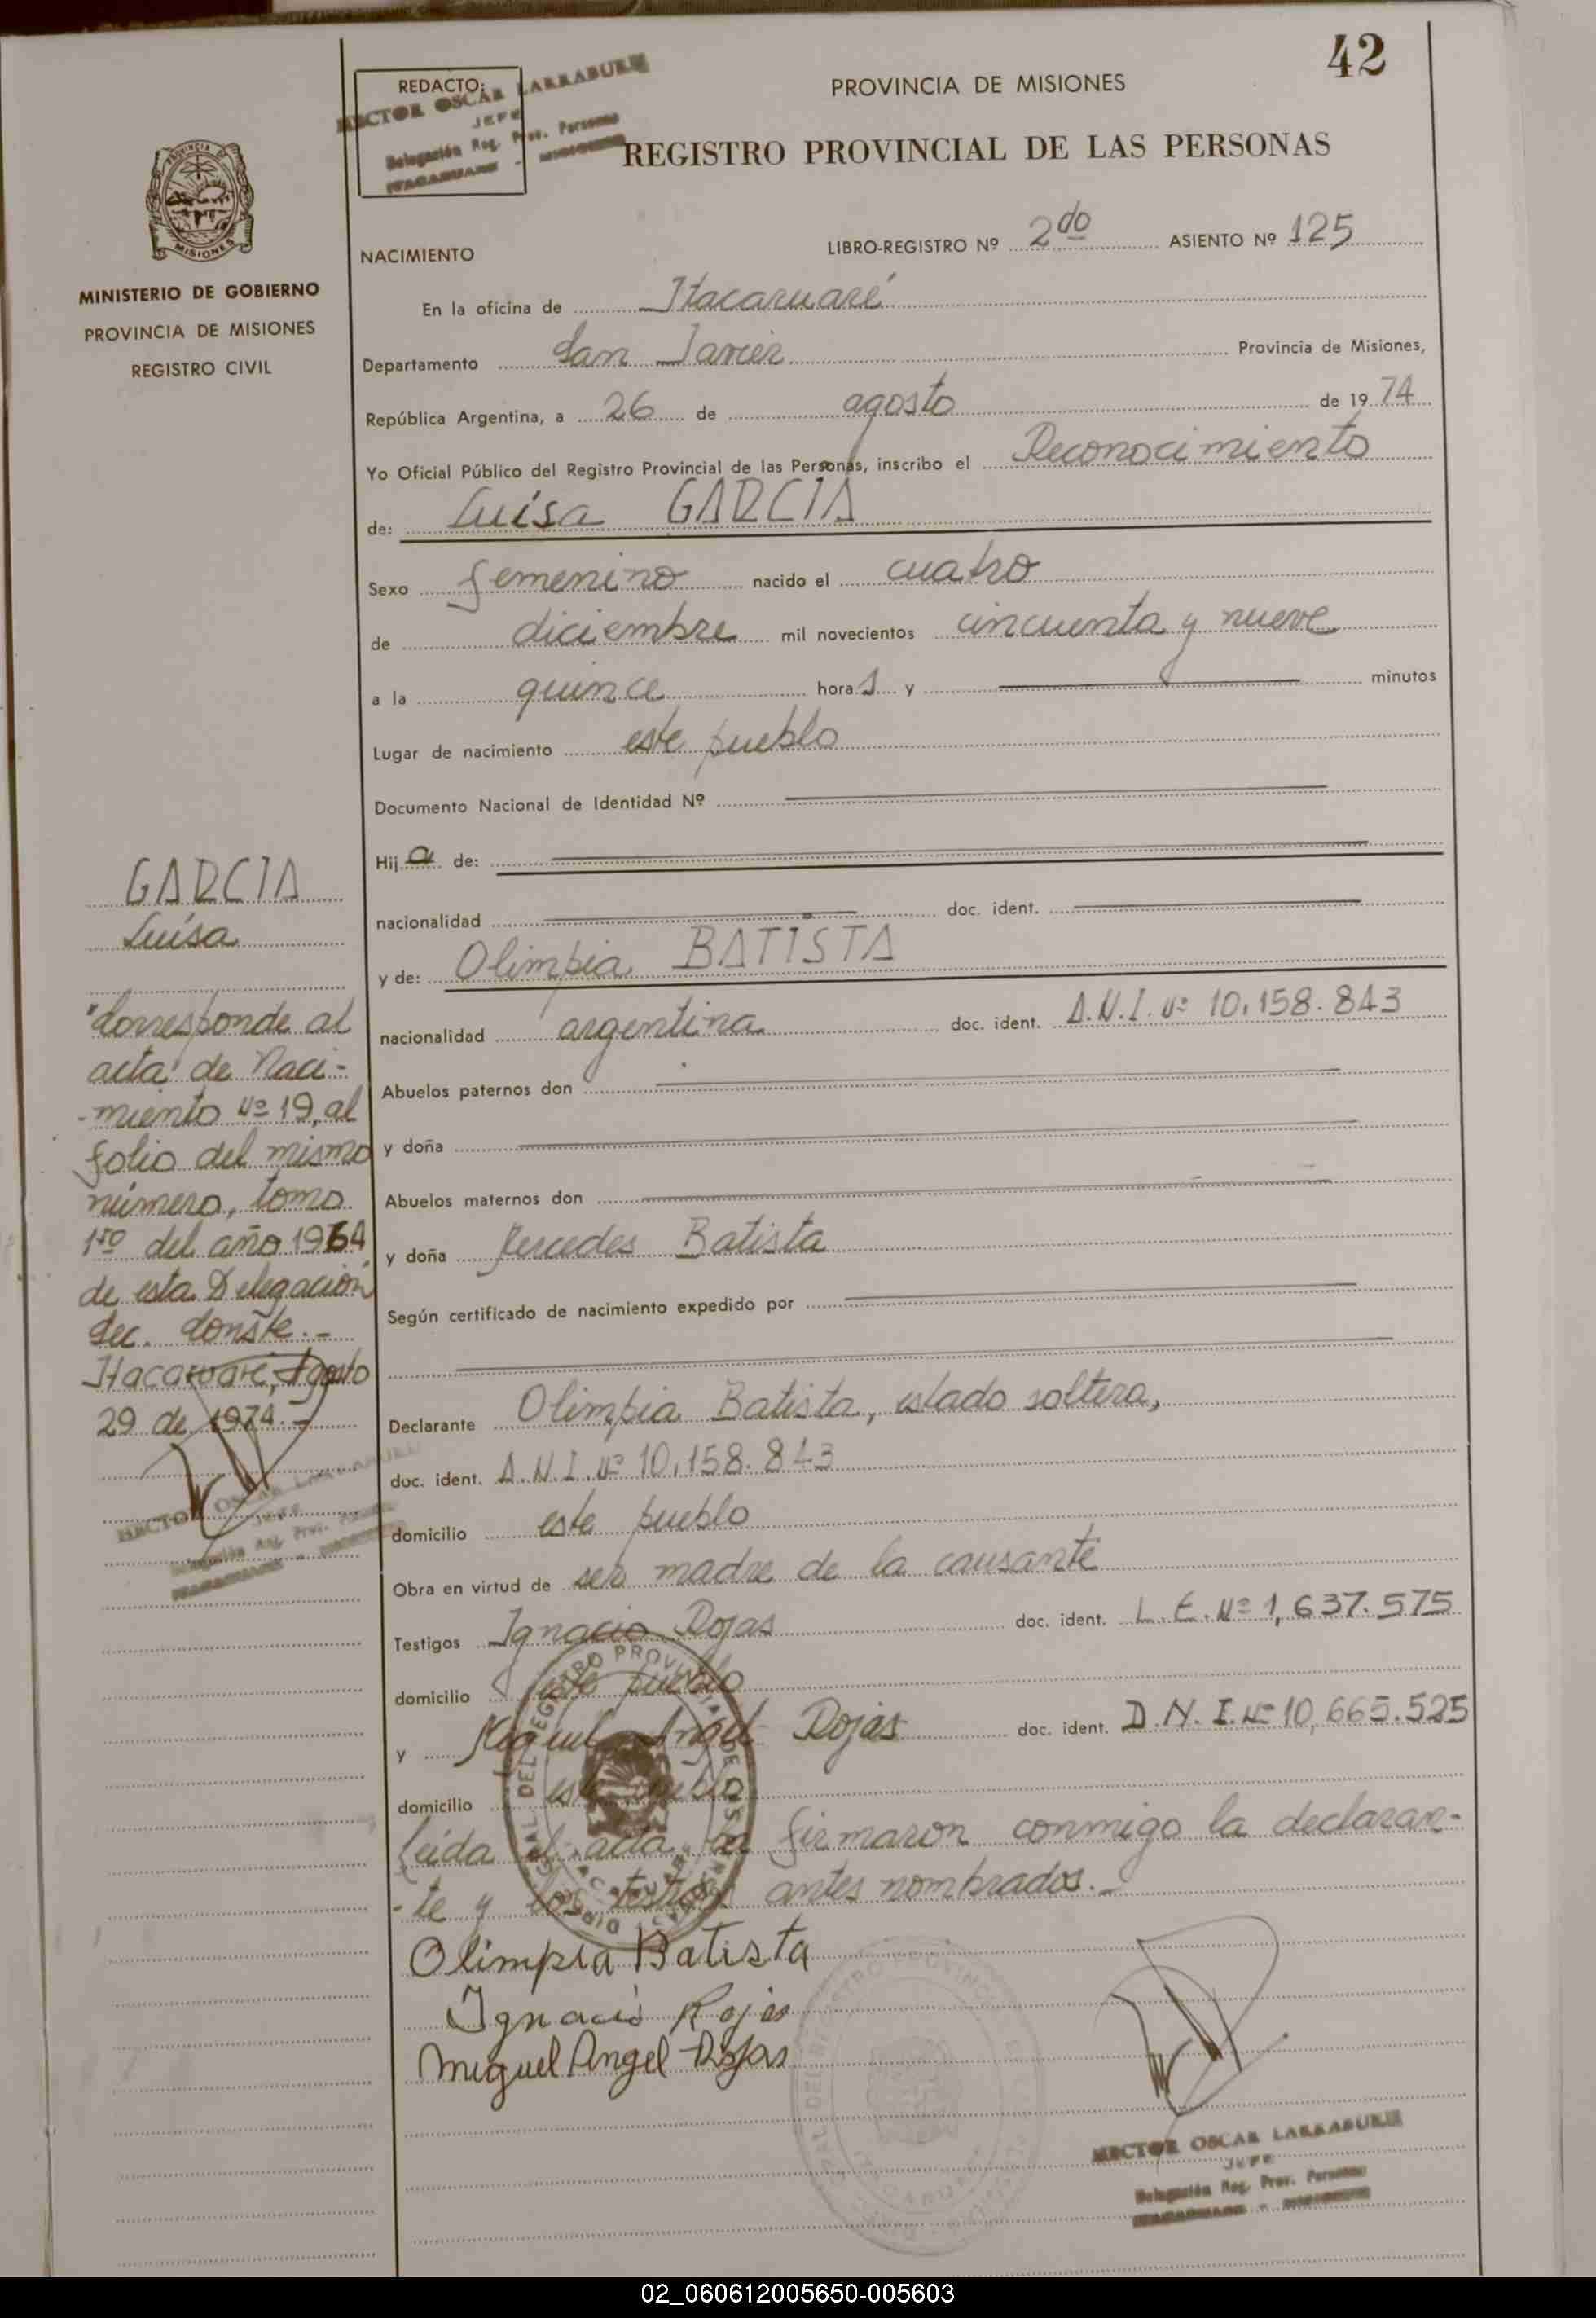 42
REDACTO:
HECTOR OSCAR LARRABURE
JEFE
Delegación Reg. Prov. Personas
ITACARUARE - MISIONES
PROVINCIA DE MISIONES
REGISTRO PROVINCIAL DE LAS PERSONAS
PROVINCIA DE
MISIONES
MINISTERIO DE GOBIERNO
PROVINCIA DE MISIONES
REGISTRO CIVIL
NACIMIENTO
LIBRO-REGISTRO Nº 2do ASIENTO Nº 125
En la oficina de Itacaruaré
Departamento San Javier Provincia de Misiones,
República Argentina, a 26 de agosto de 1974
Yo Oficial Público del Registro Provincial de las Personas, inscribo el Reconocimiento
de: Luisa GARCIA
Sexo femenino nacido el cuatro
de diciembre mil novecientos cincuenta y nueve
a la quince horas y minutos
Lugar de nacimiento este pueblo
Documento Nacional de Identidad Nº
Hija de:
nacionalidad doc. ident.
y de: Olimpia BATISTA
nacionalidad argentina doc. ident. D.N.I. Nº 10.158.843
Abuelos paternos don
y doña
Abuelos maternos don
y doña Mercedes Batista
Según certificado de nacimiento expedido por
Declarante Olimpia Batista, estado soltera,
doc. ident. D.N.I. Nº 10.158.843
domicilio este pueblo
Obra en virtud de ser madre de la causante
Testigos Ignacio Rojas doc. ident. L.E. Nº 1,637.575
domicilio este pueblo
y Miguel Angel Rojas doc. ident. D.N.I. Nº 10,665.525
domicilio este pueblo
Leida el acta, la firmaron conmigo la declaran-
-te y los testigos antes nombrados.-
Olimpia Batista
Ignacio Rojas
Miguel Angel Rojas
HECTOR OSCAR LARRABURE
JEFE
Delegación Reg. Prov. Personas
ITACARUARE - MISIONES
GARCIA
Luisa
"Corresponde al
acta de Naci-
-miento Nº 19, al
folio del mismo
número, tomo
1ro del año 1964
de esta Delegación
Conste.-
Itacaruaré, Agosto
29 de 1974.-
HECTOR OSCAR LARRABURE
JEFE
Delegación Reg. Prov. Personas
ITACARUARE - MISIONES
02_060612005650-005603